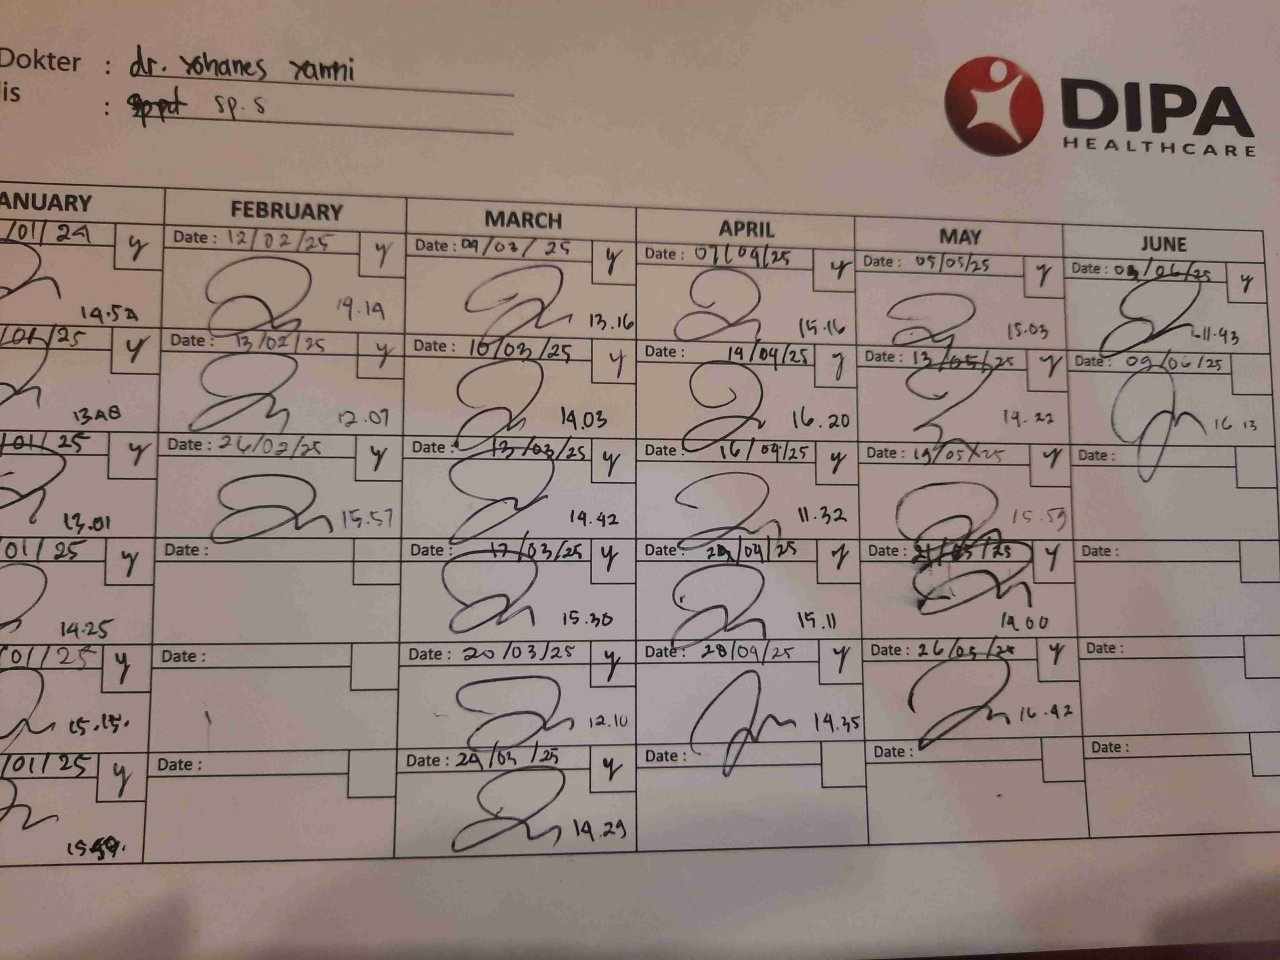 Dokter : dr. Yohanes Yanni
lis : sp.s
DIPA
HEALTHCARE
ANUARY FEBRUARY MARCH APRIL MAY JUNE
/01/24 y Date : 12/02/25 y Date : 04/03/25 y Date : 07/04/25 y Date : 05/05/25 y Date : /06/25 y
14.54 14.14 13.16 15.16 15.03 11.43
/01/25 y Date : 13/02/25 y Date : 10/03/25 y Date : 14/04/25 y Date : 13/05/25 y Date : 09/06/25
13.48 12.07 14.03 16.20 14.22 16 13
/01/25 y Date : 26/02/25 y Date : 13/03/25 y Date : 16/04/25 y Date : 19/05/25 y Date :
13.01 15.57 14.42 11.32 15.53
01/25 y Date : Date : 17/03/25 y Date : /04/25 y Date : 21/05/25 y Date :
14.25 15.30 15.11 14.00
/01/25 y Date : Date : 20/03/25 y Date : 28/04/25 y Date : 26/05/25 y Date :
15.15. 12.10 14.35 16.42
/01/25 y Date : Date : 24/03/25 y Date : Date : Date :
14.29